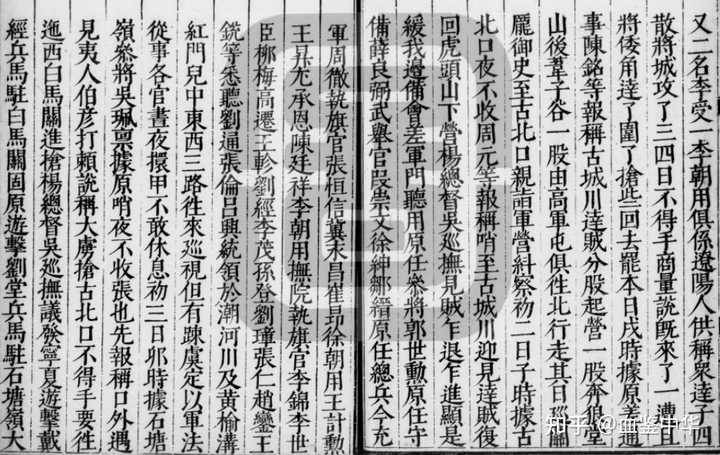 又二名李受一李朝用俱係遼陽人供稱衆達子四
散將城攻了三四日不得手商量說旣來了一遭且
將倭角達了圍了搶些回去罷本日戌時據原差通
事陳銘等報稱古城川達賊分股起營一股奔狼堂
山後葦子谷一股由高軍屯俱徃北行走其日巡關
龎御史至古北口親詣軍營糾察初二日子時據古
北口夜不收周元等報稱哨至古城川迎見達賊復
回虎頭山下營楊總督吳巡撫見賊乍退乍進顯是
緩我邊備會差軍門聽用原任叅將郭世勲原任守
備薛良弼武舉官叚崇文徐紳鄒縉原任總兵今充
軍周徹執旗官張桓信冀末昌崔昂徐朝用王計勲
王昇尤承恩陳廷祥李朝用撫院執旗官李錦李世
臣柳梅高遷王軫劉經李茂孫登劉璋張仁趙鑾王
銳等悉聽劉通張倫呂興統領於潮河川及黃榆溝
紅門兒中東西三路徃來巡視但有踈虞定以軍法
從事各官晝夜擐甲不敢休息初三日卯時據石塘
嶺叅將吳珮禀據原哨夜不收張也先報稱口外遇
見夷人伯彦打賴說稱大虜搶古北口不得手要徃
迤西白馬關進搶楊總督吳巡撫議發寧夏遊擊戴
經兵馬駐白馬關固原遊擊劉堂兵馬駐石塘嶺大
知乎 @血鉴中华